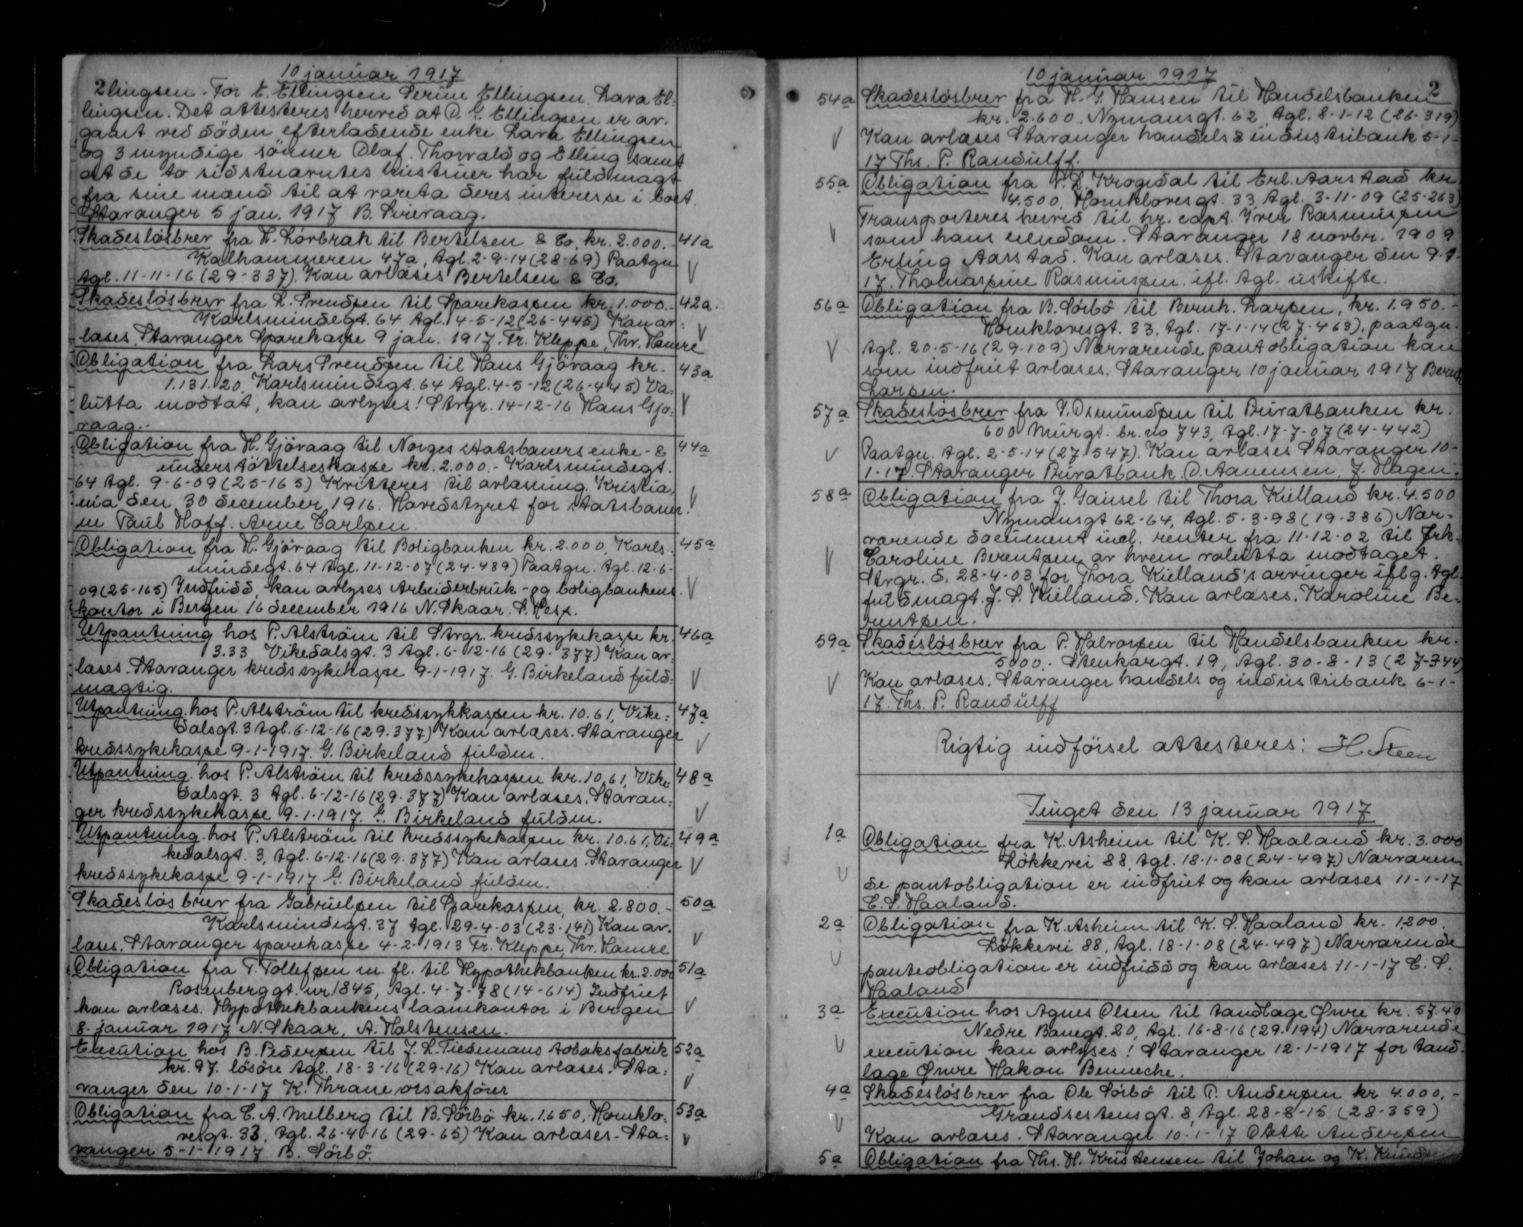 10 januar 1917
2 lingsen. For E. Ellingsen Serine Ellingsen. Lara El-
lingsen. Det attesteres herved at O. G. Ellingsen er av-
gaat ved döden efterladende enke Lara Ellingsen
og 3 myndige sönner Olaf. Thorvald og Elling samt
at de to sidstnævntes hustruer har fuldmagt
fra sine mænd til at vareta deres interesse i boet.
Stavanger 5 jan. 1917 B. Sviraag.
Skadeslösbrev fra H. Lorbrak til Bertelsen & Co, kr. 2.000.- 41a
Kalhammeren 47a, Tgl. 2-9-14 (28-69) Paategn
Tgl. 11-11-16 (29-337). Kan avlæses Bertelsen & Co.
Skadeslösbrev fra L. Svendsen til Sparekassen kr. 1.000.- 42a.
Karlsmindegt. 64 Tgl. 4-5-12 (26-445) Kan av-
læses. Stavanger Sparekasse 9 jan. 1917. Fr. Kleppe, Thv. Hamre
Obligation fra Lars Svendsen til Hans Gjöraag kr. 43a
1.131.20. Karlsmindegt. 64 Tgl. 4-5-12 (26-445) Va-
lutta modtat, kan avlyses! Stvgr. 14-12-16 Hans Gjö-
raag.-
Obligation fra H. Gjöraag til Norges statsbaners enke- & 44a
understöttelseskasse kr. 2.000.- Karlsmindegt.
64 Tgl. 9-6-09 (25-165) Kvitteres til avlæsning. Kristia-
nia den 30 december 1916. Hovedstyret for statsbaner-
ne Paul Hoff. Arne Carlsen.
Obligation fra H. Gjöraag til Boligbanken kr. 2.000, Karls- 45a
mindegt. 64 Tgl. 11-12-07 (24-489) Paategn. Tgl. 12-6-
09 (25-165) Indfridd, kan avlyses Arbeiderbruk- og boligbankens
kontor i Bergen 16 december 1916 N. Skaar. S. Hess.
Utpantning hos P. Alström til Stvgr. kredssykekasse kr. 46a
3.33 Vikedalsgt. 3 Tgl. 6-12-16 (29-377) Kan av-
læses. Stavanger kredssykekasse 9-1-1917. G. Birkeland fuld-
mægtig.
Utpantning hos P. Alström til kredssykkassen kr. 10.61, Vike- 47a
dalsgt. 3 Tgl. 6-12-16 (29.377) Kan avlæses. Stavanger
kredssykekasse 9-1-1917. G. Birkeland fuldm.
Utpantning hos P. Alström til kredssykekassen kr. 10.61, Vike- 48a
dalsgt. 3 Tgl. 6-12-16 (29.377) Kan avlæses. Stavan-
ger kredssykekasse 9-1-1917. G. Birkeland fuldm.
Utpantning hos P. Alström til kredssykekassen kr. 10.61, Vi- 49a
kedalsgt. 3, Tgl. 6-12-16 (29.377) Kan avlæses. Stavanger
kredssykekasse 9-1-1917 G. Birkeland fuldm.
Skadeslösbrev fra Gabrielsen til Sparekassen, kr. 2.800.- 50a
Karlsmindegt. 37 Tgl. 29-4-03 (23-141) Kan av-
læses. Stavanger sparekasse 4-2-1913 Fr. Kleppe, Thv. Hamre
Obligation fra T. Tollefsen m. fl. til Hypothekbanken kr. 2.000 51a
Rosenberggt. nr 1845, Tgl. 4-7-78 (14-614) Indfriet
kan avlæses. Hypothekbankens laanekontor i Bergen
8. januar 1917 N. Skaar, A. Halstensen.
Execution hos B. Pedersen til J. L. Tiedemans tobaksfabrik 52a
kr. 97. lösöre Tgl. 18-3-16 (29-16) Kan avlæses. Sta-
vanger den 10-1-17 K. Thrane, orsakförer
Obligation fra E. A. Melberg til B. Sörbö, kr. 1.650, Hornklo- 53a
vesgt. 33, Tgl. 26-4-16 (29-65) Kan avlæses. Sta-
vanger 5-1-1917 B. Sörbö.
10 januar 1917
2
54a Skadeslösbrev fra H. G. Hansen til Handelsbanken
kr. 2.600. Nymansgt. 62. Tgl. 8-1-12 (26-319)
Kan avlæses Stavanger handels & industribank 5-1-
17 Ths. P. Randulff.
55a Obligation fra V. L. Krogdal til Erl. Aarstad kr.
4.500, Hornklovesgt. 33, Tgl. 3-11-09 (25-263)
Transporteres herved til hr. capt. Iver Rasmussen
som hans eiendom. Stavanger 18 novbr. 1909
Erling Aarstad. Kan avlæses. Stavanger den 9-1-
17. Thomassine Rasmussen. ifl. Tgl. uskifte.
56a Obligation fra B. Sörbö til Bernh. Larsen, kr. 1.950.-
Hornklovesgt. 33, Tgl. 17-1-14 (27-463), paategn.
Tgl. 20-5-16 (29-109) Nærværende pantobligation kan
som indfriet avlæses. Stavanger 10 januar 1917 Bernh
Larsen.
57a Skadeslösbrev fra V. Osmundsen til Privatbanken kr.
600 Murgt. br. no 743, Tgl. 17-7-07 (24-442)
Paategn. Tgl. 2-5-14 (27 547). Kan avlæses Stavanger 10-
1-17. Stavanger Privatbank O. Aanensen, J. Hagen.
58a Obligation fra J. Gausel til Thora Kielland kr. 4.500
Nymansgt 62-64, Tgl. 5-3-98 (19-386) Nær-
værende document incl. renter fra 11-12-02 til Frk.
Caroline Berentsen av hvem valutta modtaget.
Stvgr. d. 28-4-03 for Thora Kielland's arvinger iflg. Tgl.
fuldmagt J. S. Kielland. Kan avlæses. Karoline Be-
rentsen.
59a Skadeslösbrev fra P. Halvorsen til Handelsbanken kr.
5000.- Stenkargt. 19, Tgl. 30-8-13 (27-344)
Kan avlæses. Stavanger handels og industribank 6-1-
17. Ths. P. Randulff
Rigtig indförsel attesteres: H. Steen
Tinget den 13 januar 1917
1a Obligation fra K. Asheim til K. S. Haaland kr. 3.000
Lökkevei 88, Tgl. 18-1-08 (24-497) Nærværen-
de pantobligation er indfriet og kan avlæses 11-1-17
E. S. Haaland.
2a Obligation fra K. Asheim til K. S. Haaland kr. 1200.
Lökkevei 88, Tgl. 18-1-08 (24-497) Nærværende
panteobligation er indfridd og kan avlæses 11-1-17 E. S.
Haaland
3a Execution hos Agnes Olsen til tandlæge Owre kr. 57.40
Nedre Banegt. 20, Tgl. 16-8-16 (29.194) Nærværende
execution kan avlyses! Stavanger 12-1-1917 for tand-
læge Owre Hakon Benneche.
4a Skadeslösbrev fra Ole Sörbö til P. Andersen kr 4.000.-
Graadsestensgt. 8, Tgl. 28-8-15 (28-359)
Kan avlæses. Stavanger 10-1-17 Andersen
5a Obligation fra Ths. H. Kristensen til Johan og K. Knudsen